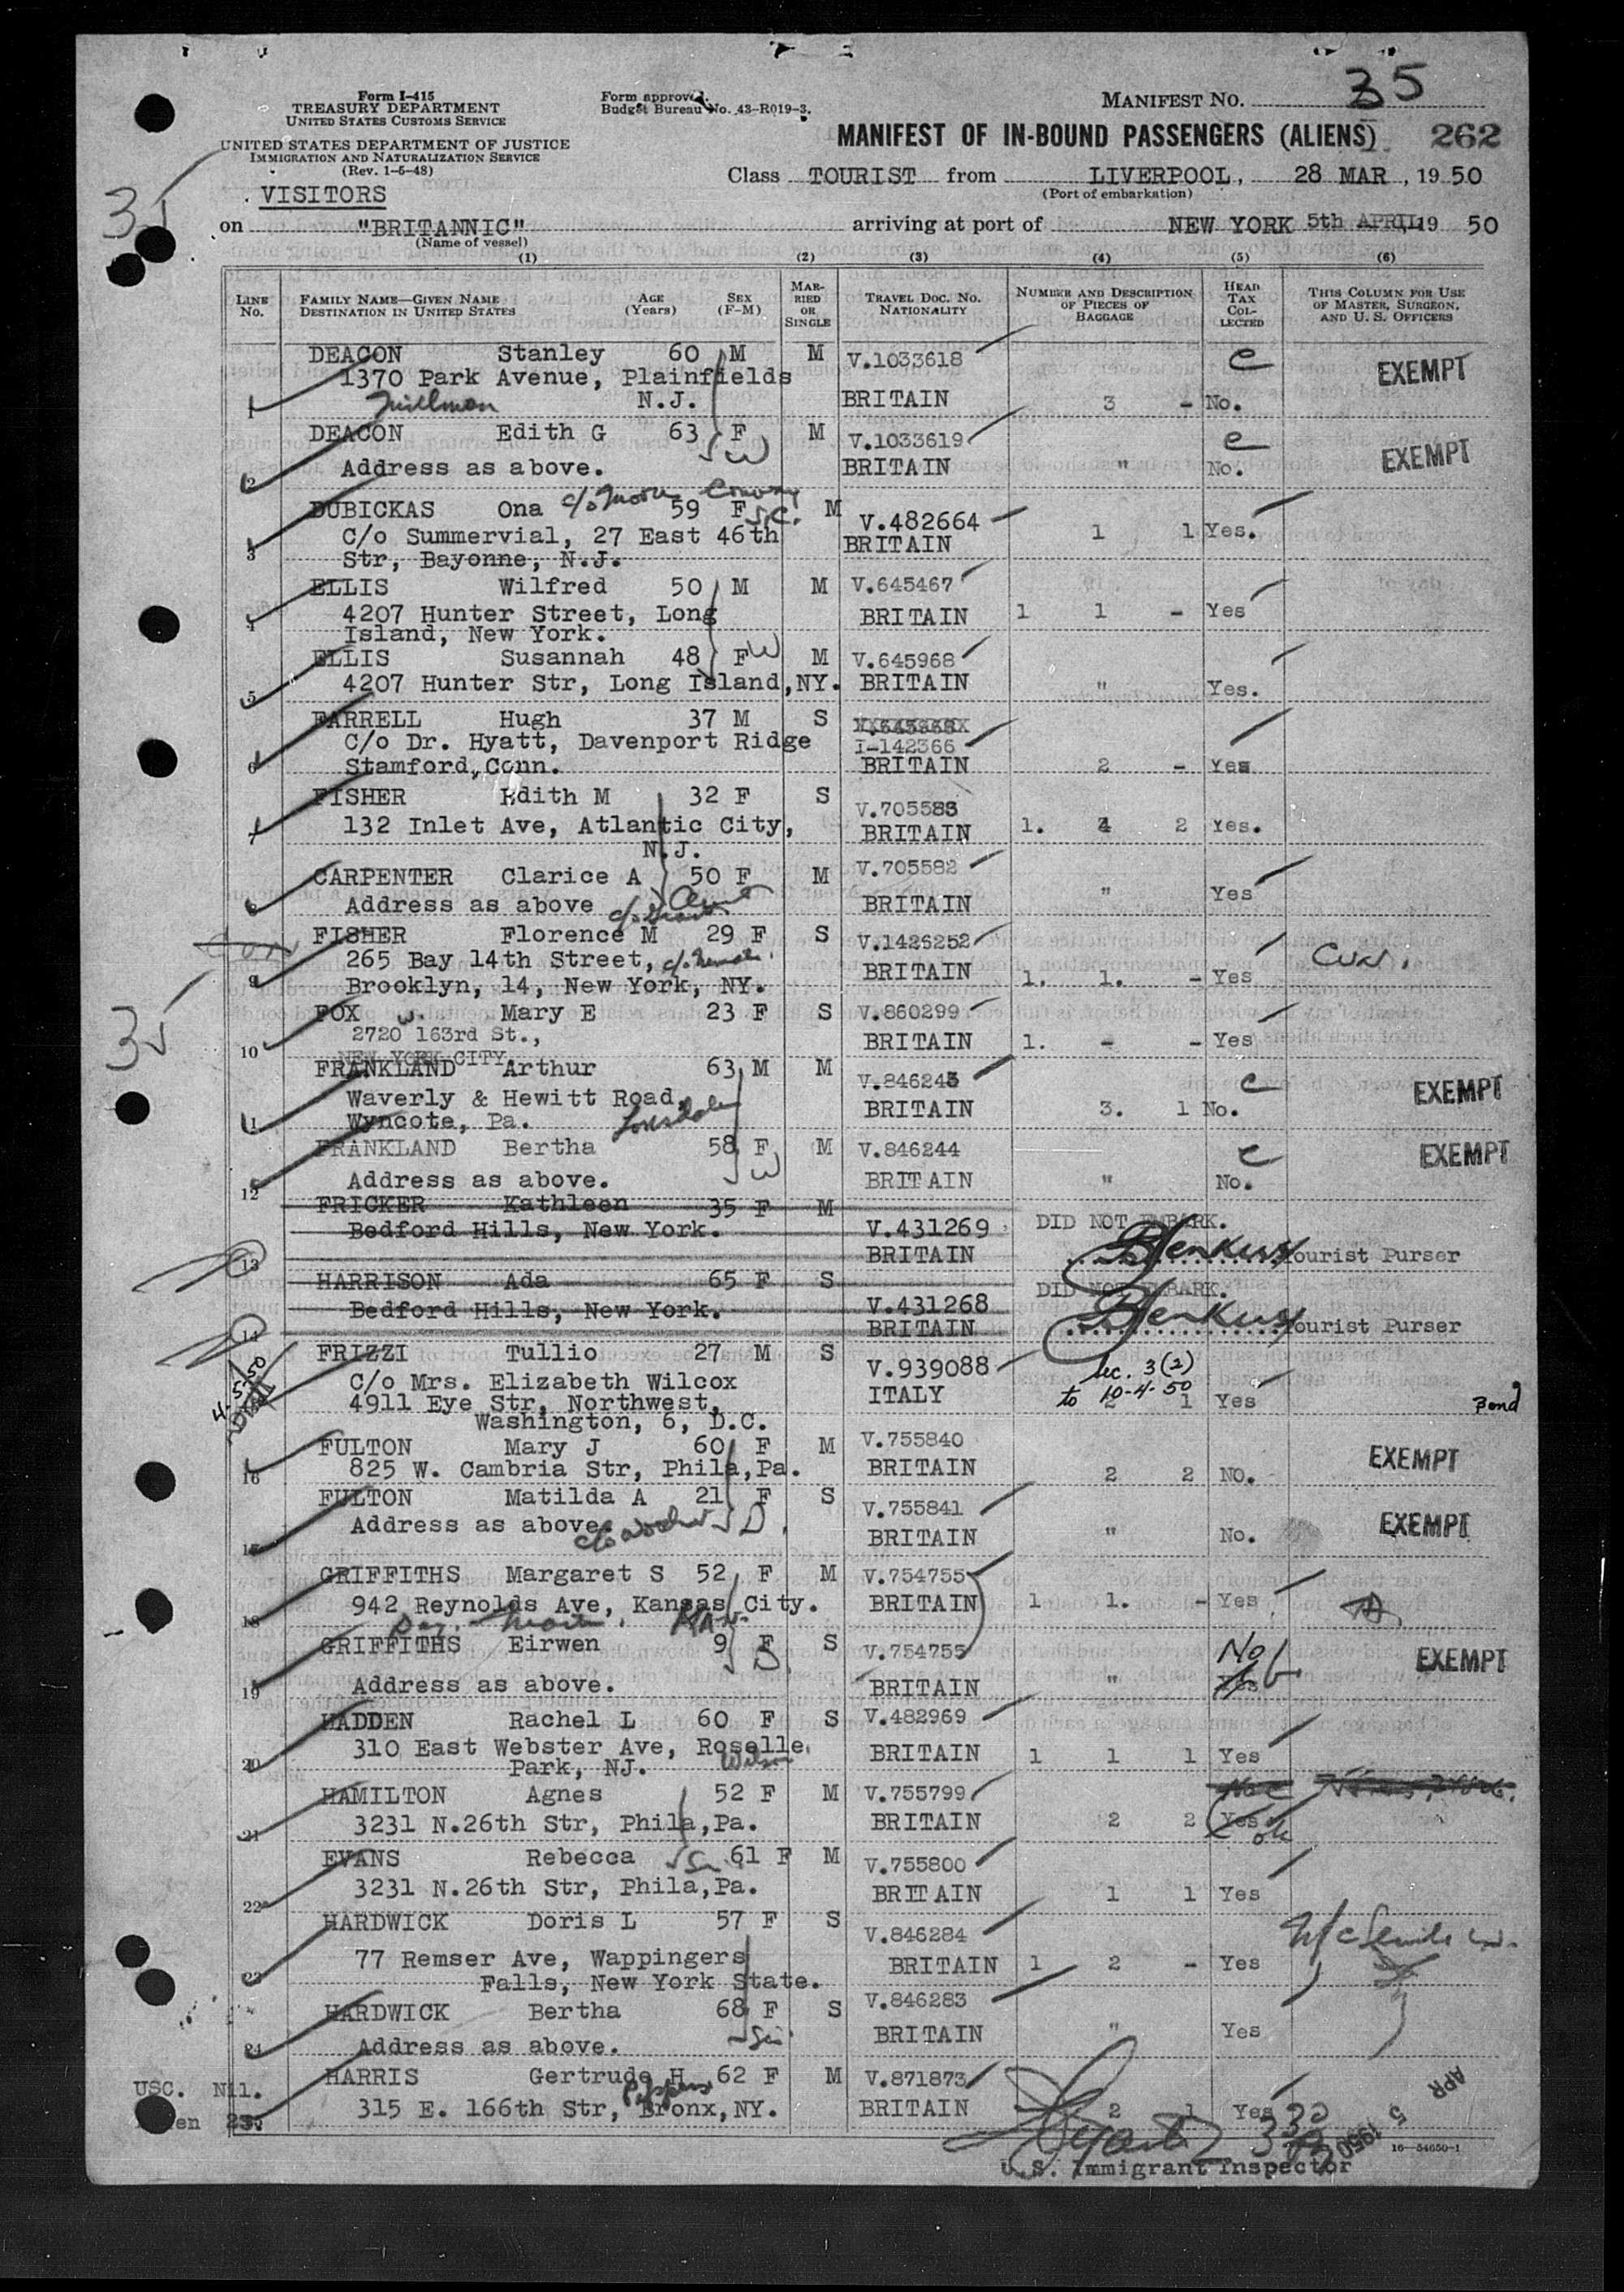 Form I-415
TREASURY DEPARTMENT
UNITED STATES CUSTOMS SERVICE
UNITED STATES DEPARTMENT OF JUSTICE
IMMIGRATION AND NATURALIZATION SERVICE
(Rev. 1-6-48)
VISITORS
Form approved.
Budget Bureau No. 43-R019-3.
MANIFEST NO. 35
MANIFEST OF IN-BOUND PASSENGERS (ALIENS) 262
Class TOURIST from LIVERPOOL, 28 MAR, 1950
(Port of embarkation)
35
on "BRITANNIC" arriving at port of NEW YORK 5th APRIL 19 50
(Name of vessel)
(1) (2) (3) (4) (5) (6)
LINE No. FAMILY NAME—GIVEN NAME DESTINATION IN UNITED STATES AGE (Years) SEX (F-M) MARRIED OR SINGLE TRAVEL DOC. NO. NATIONALITY NUMBER AND DESCRIPTION OF PIECES OF BAGGAGE HEAD TAX COLLECTED THIS COLUMN FOR USE OF MASTER, SURGEON, AND U. S. OFFICERS
DEACON Stanley 60 M M V.1033618 e EXEMPT
1370 Park Avenue, Plainfields
1 Millman N.J. BRITAIN 3 - No.
DEACON Edith G 63 F M V.1033619 e EXEMPT
W
2 Address as above. BRITAIN " No.
DUBICKAS Ona c/o 59 F M V.482664 1 1 Yes.
3 C/o Summervial, 27 East 46th BRITAIN
Str, Bayonne, N.J.
ELLIS Wilfred 50 M M V.645467
4 4207 Hunter Street, Long BRITAIN 1 1 - Yes
Island, New York.
ELLIS Susannah 48 F W M V.645968
5 4207 Hunter Str, Long Island,NY. BRITAIN " Yes.
FARRELL Hugh 37 M S
C/o Dr. Hyatt, Davenport Ridge I-142366
6 Stamford,Conn. BRITAIN 2 - Yes
FISHER Edith M 32 F S V.705583
7 132 Inlet Ave, Atlantic City, BRITAIN 1. 4 2 Yes.
N.J.
CARPENTER Clarice A 50 F M V.705582
8 Address as above Aunt BRITAIN " Yes
FISHER Florence M 29 F S V.1426252
265 Bay 14th Street,
9 Brooklyn, 14, New York, NY. BRITAIN 1. 1. - Yes
35
FOX Mary E 23 F S V.860299
2720 163rd St.,
10 NEW YORK CITY. BRITAIN 1. - - Yes
FRANKLAND Arthur 63 M M V.846243 e EXEMPT
Waverly & Hewitt Road,
11 Wyncote, Pa. BRITAIN 3. 1 No.
FRANKLAND Bertha 58 F M V.846244 e EXEMPT
W
12 Address as above. BRITAIN " No.
FRICKER Kathleen 35 F M
Bedford Hills, New York. V.431269 DID NOT EMBARK.
13 BRITAIN Tourist Purser
HARRISON Ada 65 F S DID NOT EMBARK.
Bedford Hills, New York. V.431268
14 BRITAIN Tourist Purser
FRIZZI Tullio 27 M S V.939088 Sec. 3(2)
4-5-50
C/o Mrs. Elizabeth Wilcox to 10-4-50
4911 Eye Str, Northwest, ITALY 2 1 Yes Bond
Washington, 6, D.C.
FULTON Mary J 60 F M V.755840 EXEMPT
16 825 W. Cambria Str, Phila,Pa. BRITAIN 2 2 NO.
FULTON Matilda A 21 F S V.755841 EXEMPT
D.
17 Address as above. BRITAIN " No.
GRIFFITHS Margaret S 52 F M V.754755
18 942 Reynolds Ave, Kansas City. BRITAIN 1 1. - Yes
GRIFFITHS Eirwen 9 F S V.754755 No EXEMPT
D.
19 Address as above. BRITAIN " Yes
HADDEN Rachel L 60 F S V.482969
20 310 East Webster Ave, Roselle BRITAIN 1 1 1 Yes
Park, NJ. Wilson
HAMILTON Agnes 52 F M V.755799
21 3231 N.26th Str, Phila,Pa. BRITAIN 2 2 Yes ok
EVANS Rebecca 61 F M V.755800
22 3231 N.26th Str, Phila,Pa. BRITAIN 1 1 Yes
HARDWICK Doris L 57 F S V.846284
23 77 Remser Ave, Wappingers BRITAIN 1 2 - Yes
Falls, New York State.
HARDWICK Bertha 68 F S V.846283
24 Address as above. BRITAIN " Yes
HARRIS Gertrude H 62 F M V.871873
USC. Nil.
23. 315 E. 166th Str, Bronx,NY. BRITAIN 2 1 Yes
5 APR 1950
16—54650-1
U.S. Immigrant Inspector